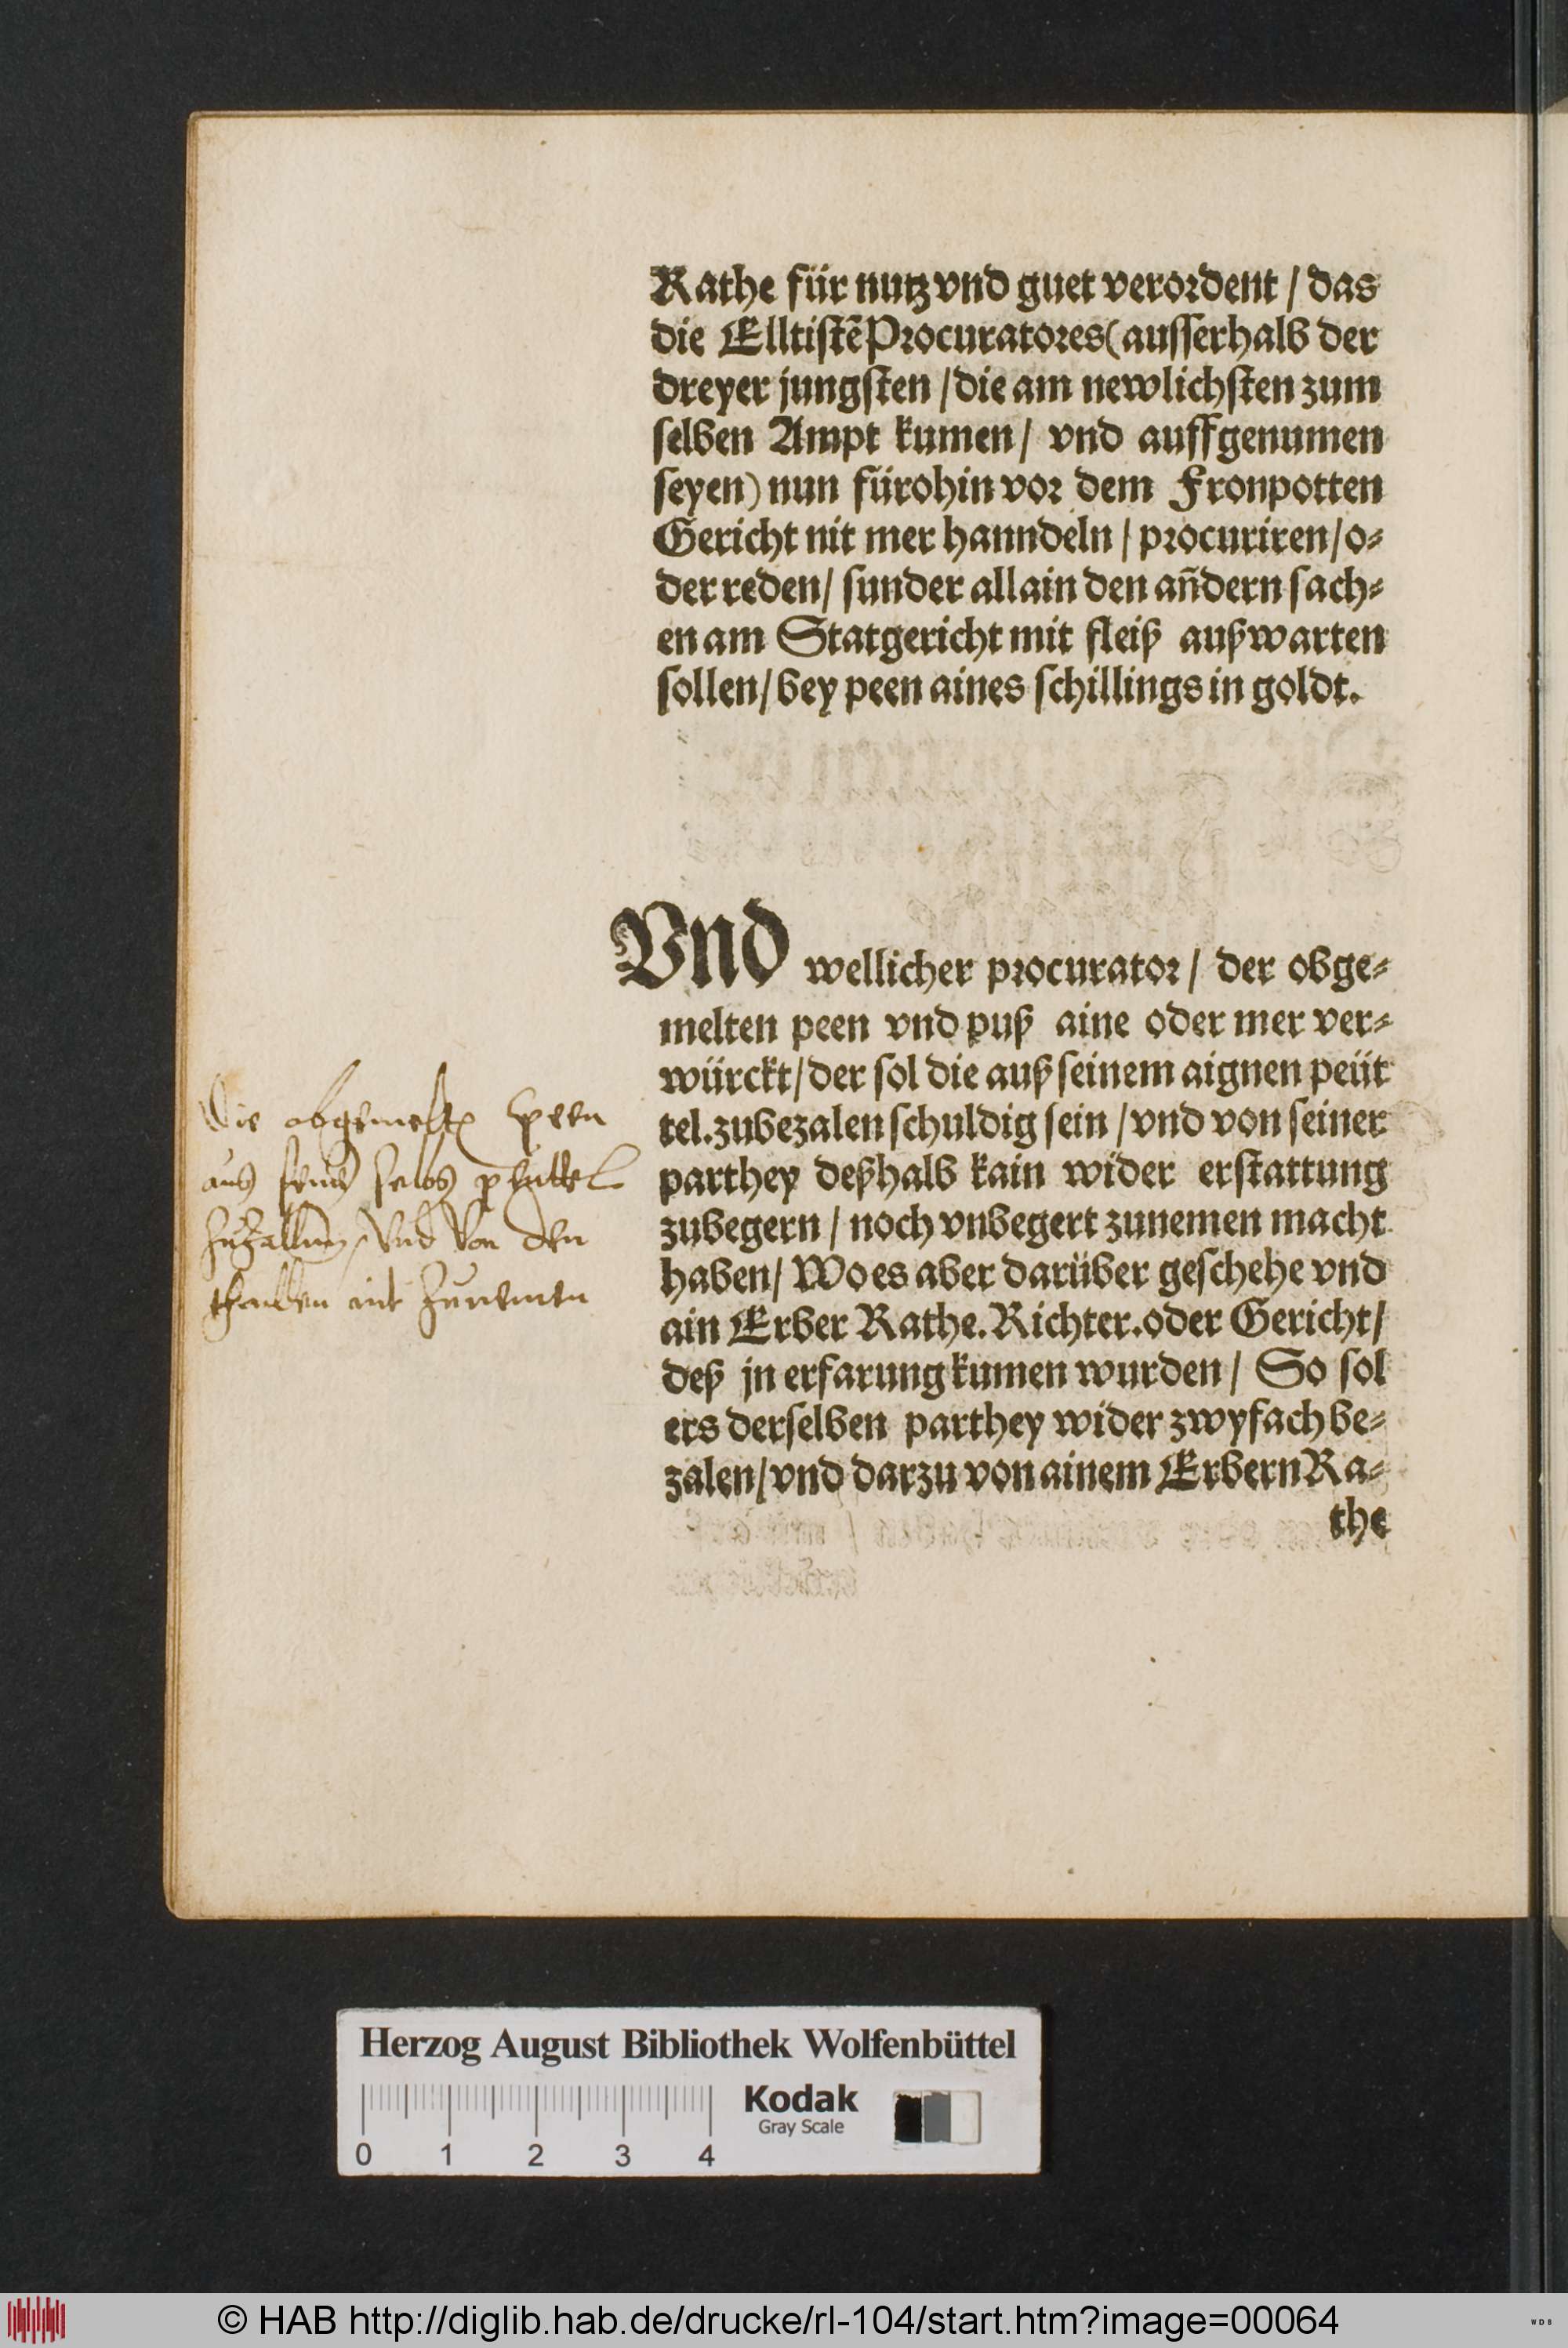 Rathe für nutz vnd guet verordent / das
die Elltistẽ Procuratores (ausserhalb der
dreyer jungsten / die am newlichsten zum
selben Ampt kumen / vnd auffgenumen
seyen) nun fürohin vor dem Fronpotten
Gericht nit mer hanndeln / procuriren / o⸗
der reden / sunder allain den añdern sach⸗
en am Statgericht mit fleiß außwarten
sollen / bey peen aines schillings in goldt.
Vnd wellicher procurator / der obge⸗
melten peen vnd puß aine oder mer ver⸗
würckt / der sol die auß seinem aignen peüt
tel. zubezalen schuldig sein / vnd von seiner
parthey deßhalb kain wider erstattung
zubegern / noch vnbegert zunemen macht
haben / Wo es aber darüber geschehe vnd
ain Erber Rathe. Richter. oder Gericht /
deß jn erfarung kumen wurden / So sol
ers derselben parthey wider zwyfach be⸗
zalen / vnd darzu von ainem Erbern Ra⸗
the
Die obgemelte peen
aus seins selbs peuttel
Zuzallen, Vnd Von den
nit Zunemen
Herzog August Bibliothek Wolfenbüttel
Kodak
Gray Scale
0 1 2 3 4
© HAB http://diglib.hab.de/drucke/rl-104/start.htm?image=00064
WDB